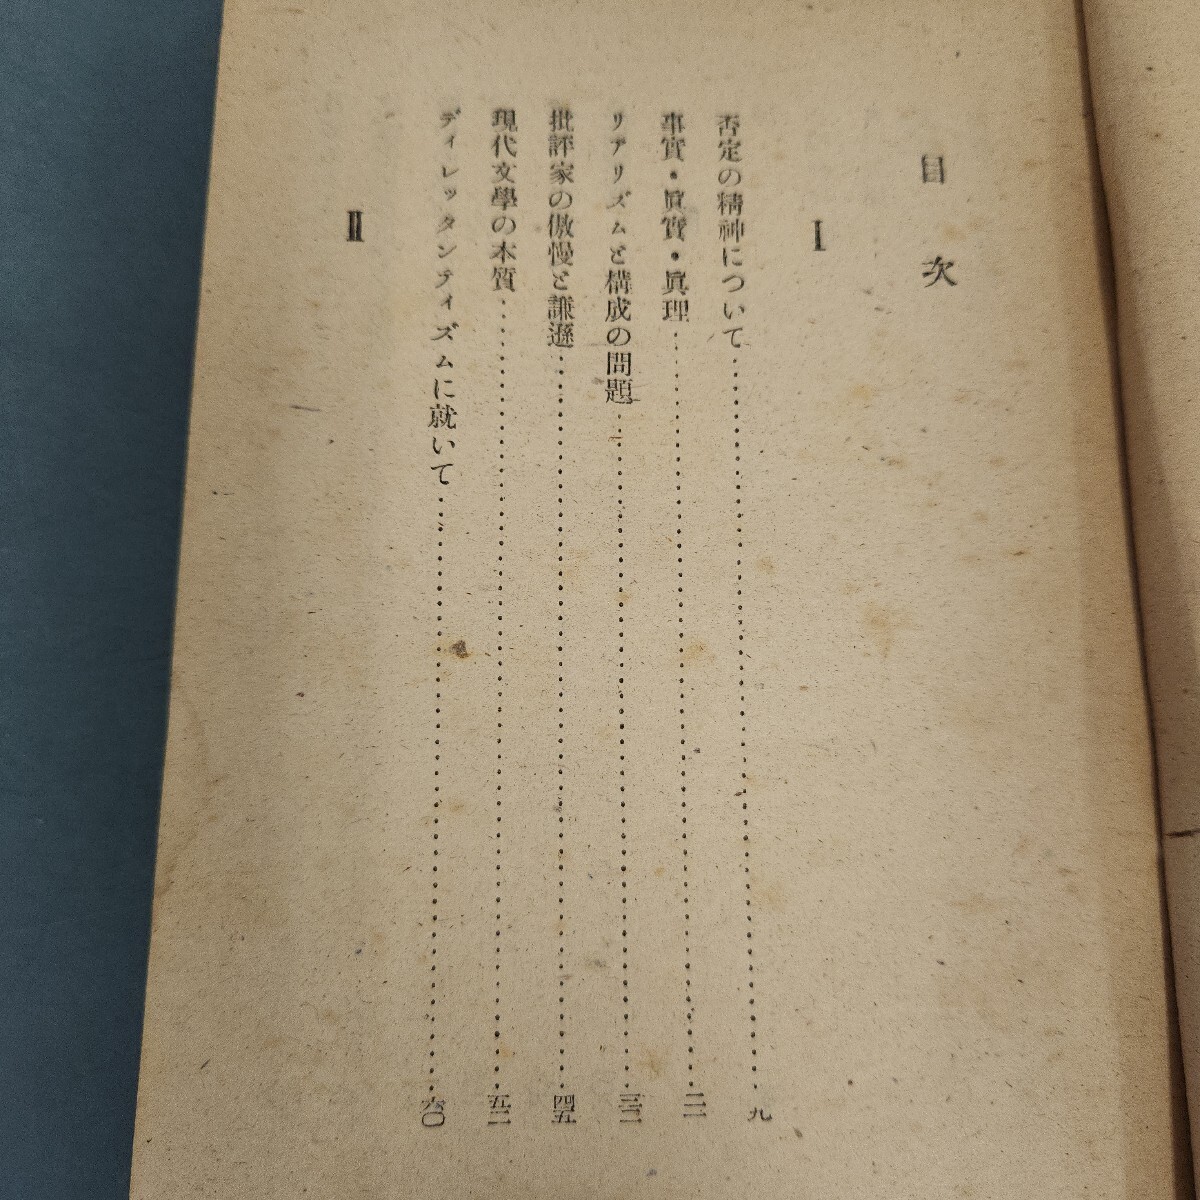 目次
I
否定の精神について……九
事實・眞實・眞理……二一
リアリズムと構成の問題……三二
批評家の傲慢と謙遜……四五
現代文學の本質……五二
ディレッタンティズムに就いて……六〇
II